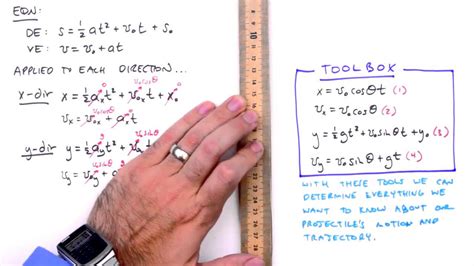 EQN:
DE: s = ½at² + v₀t + s₀
VE: v = v₀ + at
APPLIED TO EACH DIRECTION...
x-dir x = ½aₓt² + v₀ₓt + x₀
0 v₀cosθ 0
vₓ = v₀ₓ + aₓt
v₀cosθ 0
y-dir y = ½a_yt² + v₀
v₀sinθ
v_y = v₀y + a
v₀sinθ
10
TOOLBOX
x = v₀cosθt (1)
vₓ = v₀cosθ (2)
y = ½gt² + v₀sinθt + y₀ (3)
v_y = v₀sinθ + gt (4)
WITH THESE TOOLS WE CAN
DETERMINE EVERYTHING WE
WANT TO KNOW ABOUT OUR
PROJECTILE'S MOTION AND
TRAJECTORY.